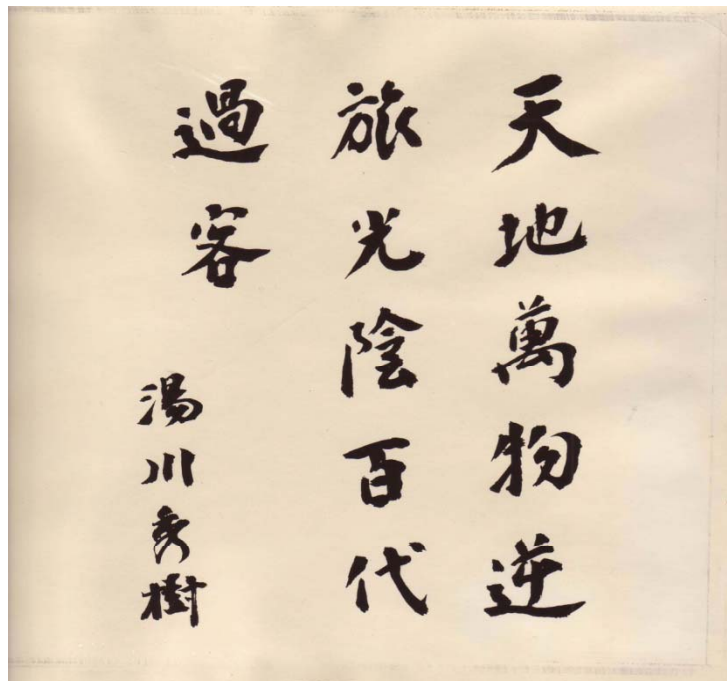 天地萬物逆
旅光陰百代
過客
湯川秀樹